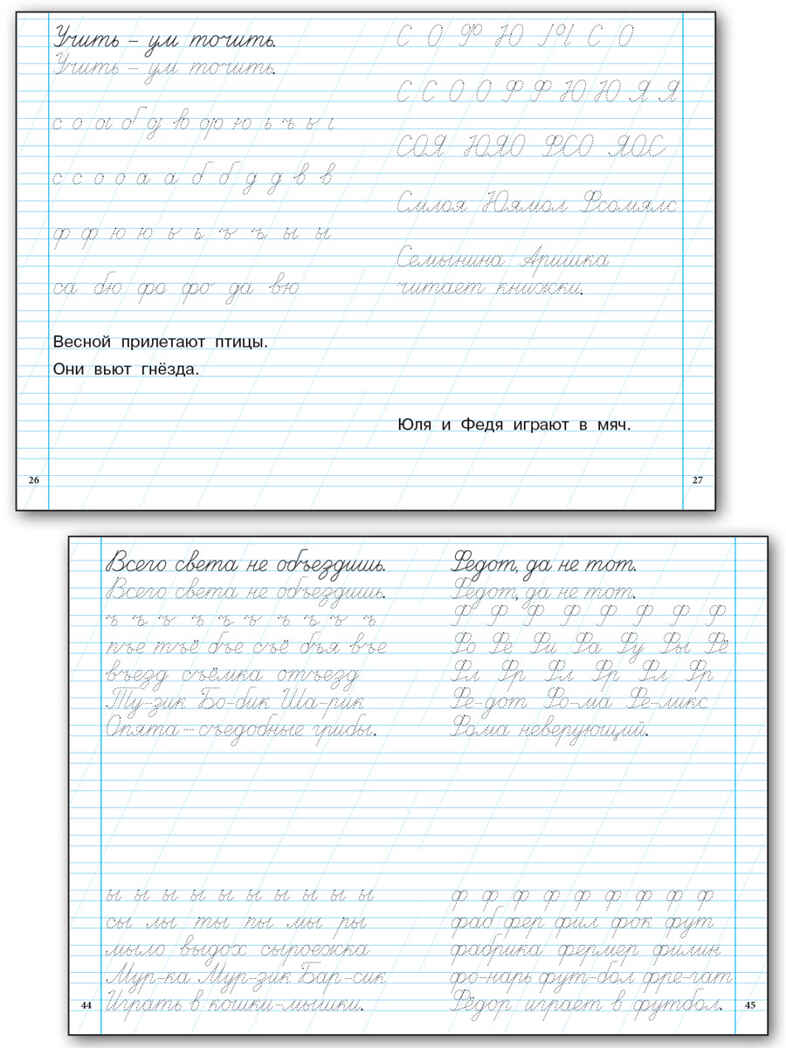 Учить – ум точить.
Учить – ум точить.
с о а б д в ф ю ь ъ ы
с с о о а а б б д д в в
ф ф ю ю ь ь ъ ъ ы ы
са бю фо фо да вю
Весной прилетают птицы.
Они вьют гнёзда.
26
С О Ф Ю Я С О
С С О О Ф Ф Ю Ю Я Я
СОЯ ЮЯО ФСО ЯОС
Смлоя Юямол Фсомялс
Семынина Аришка
читает книжки.
Юля и Федя играют в мяч.
27
Всего света не объездишь.
Всего света не объездишь.
ъ ъ ъ ъ ъ ъ ъ ъ ъ ъ
пъе тъё бъе съё бъя въе
въезд съёмка отъезд
Ту-зик Бо-бик Ша-рик
Опята – съедобные грибы.
ы ы ы ы ы ы ы ы ы ы
сы лы ты пы мы ры
мыло выдох сыроежка
Мур-ка Мур-зик Бар-сик
Играть в кошки-мышки.
44
Федот, да не тот.
Федот, да не тот.
Ф Ф Ф Ф Ф Ф Ф Ф
Фо Фе Фи Фа Фу Фы Фё
Фл Фр Фл Фр Фл Фр
Фе-дот Фо-ма Фе-ликс
Фома неверующий.
ф ф ф ф ф ф ф ф ф
фаб фер фил фок фут
фабрика фермер филин
фо-нарь фут-бол фре-гат
Фёдор играет в футбол.
45